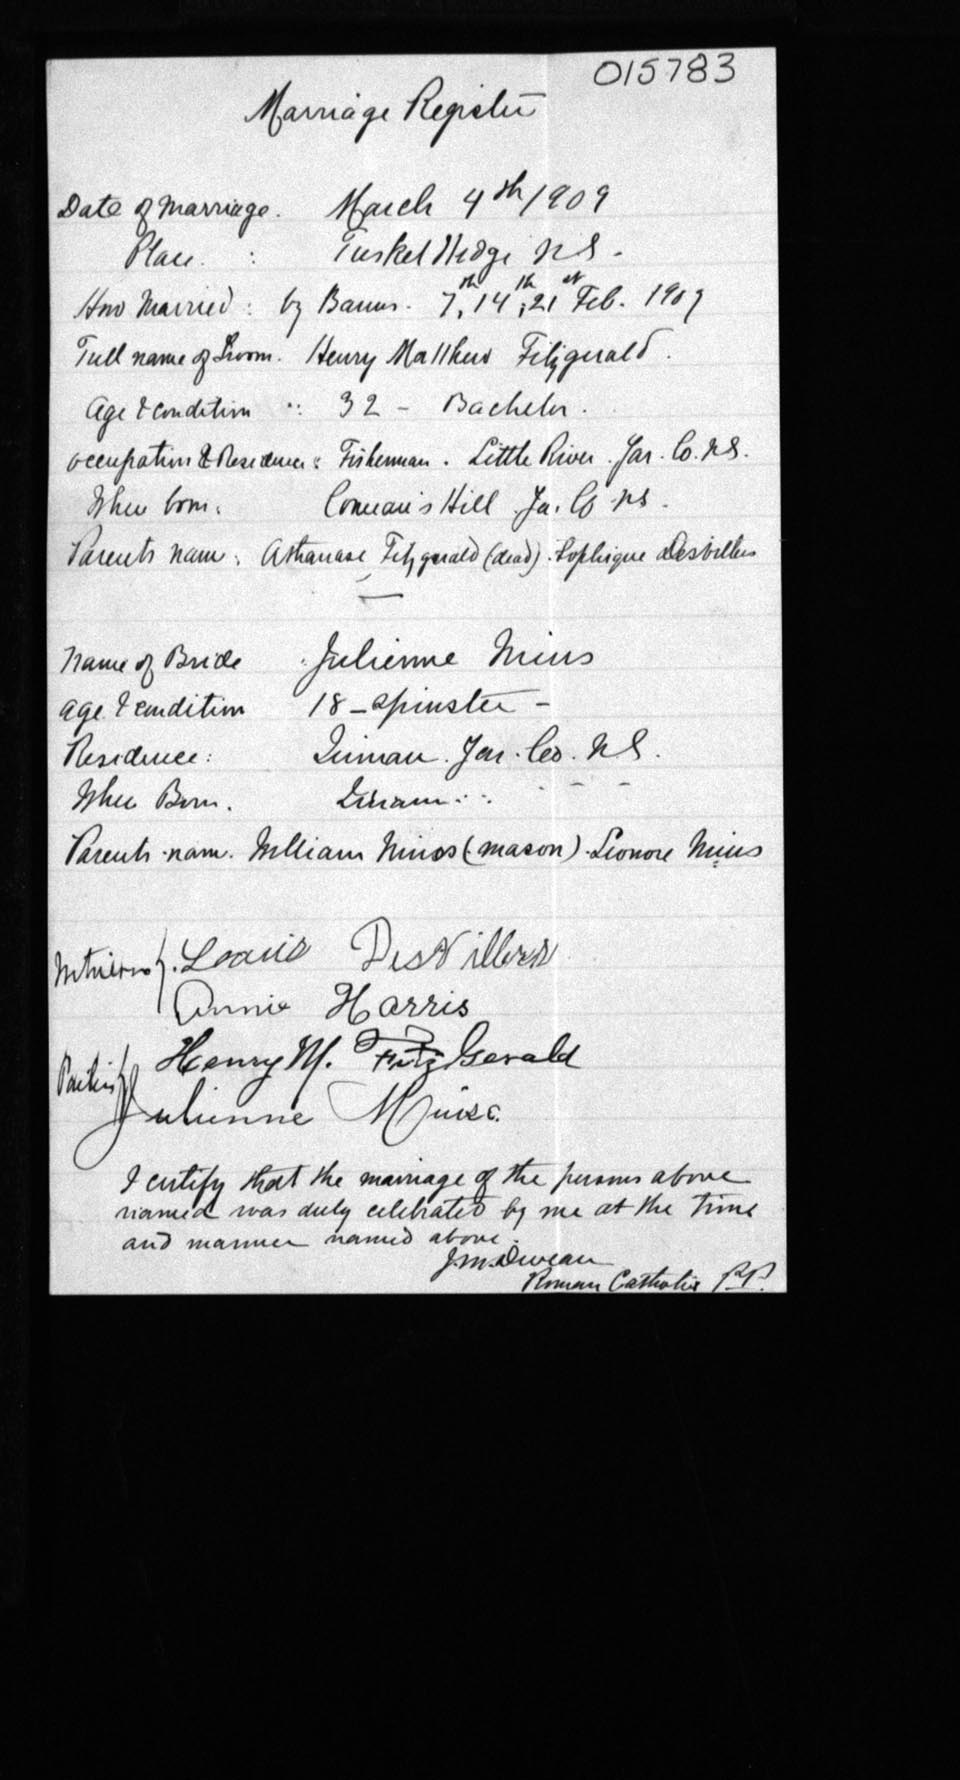 015783
Marriage Register
Date of Marriage. March 4th/1909
Place : Tusket Wedge N S.
How Married : by Banns. 7th, 14th, 21st Feb. 1909
Full name of Groom. Henry Matthew Fitzgerald.
Age & condition : 32 - Bachelor.
occupation & Residence : Fisherman. Little River. Yar. Co. N.S.
Where born : Comeau's Hill Yar. Co NS.
Parents nam : Athanase Fitzgerald (dead). Sophique DesVillers
Name of Bride : Julienne Mius
age & condition 18 - Spinster -
Residence : Quinan. Yar. Co. N S.
Where Born. Quinan : : - - -
Parents nam. William Mius (mason). Leonore Mius
Witnesses }. Louis DesVillers
Annie Harris
Parties } Henry M. FitzGerald
Julienne Muise.
I certify that the marriage of the persons above
named was duly celebrated by me at the time
and manner named above.
J.M. Duveau
Roman Catholic P.P.